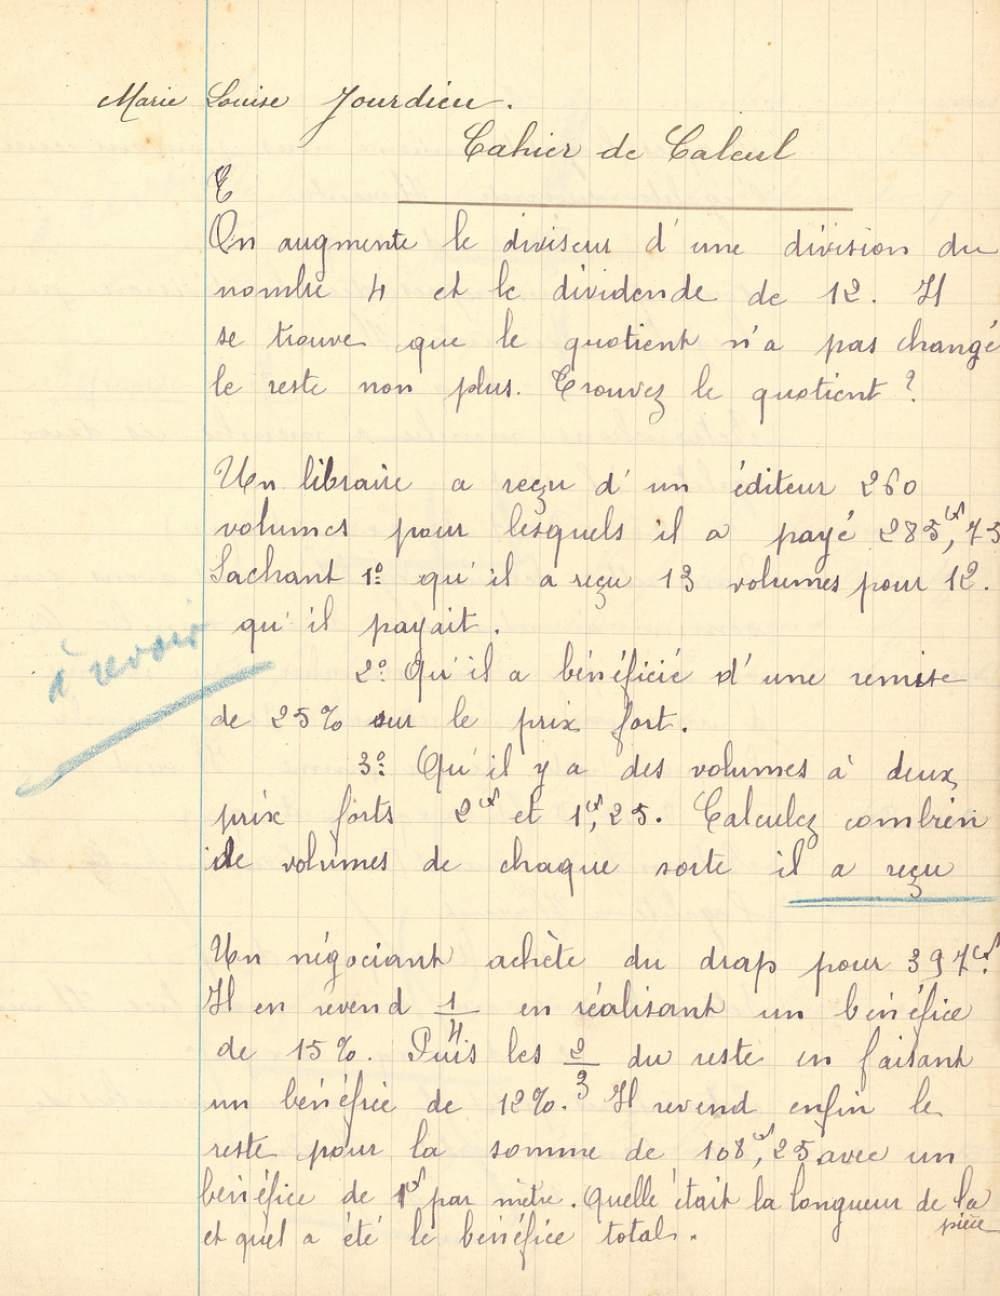 Marie Louise Jourdieu.
Cahier de Calcul
On augmente le diviseur d'une division du
nombre 4 et le dividende de 12. Il
se trouve que le quotient n'a pas changé
le reste non plus. Trouvez le quotient ?
Un libraire a reçu d'un éditeur 260
volumes pour lesquels il a payé 285fr,75
Sachant 1º qu'il a reçu 13 volumes pour 12.
qu'il payait.
à revoir
2º Qu'il a bénéficié d'une remise
de 25% sur le prix fort.
3º Qu'il y a des volumes à deux
prix forts 2fr et 1fr,25. Calculez combien
de volumes de chaque sorte il a reçu
Un négociant achète du drap pour 397fr.
Il en revend 1/4 en réalisant un bénéfice
de 15%. Puis les 2/3 du reste en faisant
un bénéfice de 12%. Il revend enfin le
reste pour la somme de 108fr,25 avec un
bénéfice de 1fr par mètre. Quelle était la longueur de la
pièce
et quel a été le bénéfice total.